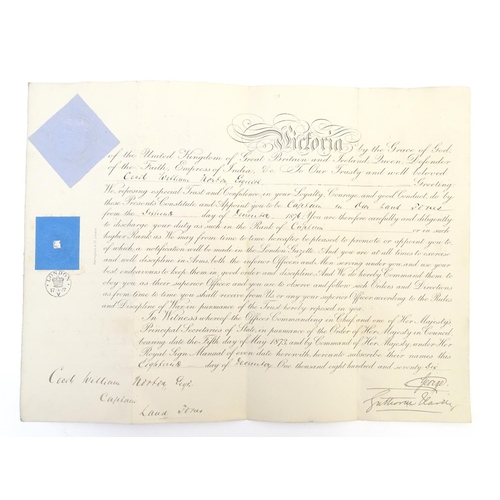 Victoria by the Grace of God,
of the United Kingdom of Great Britain and Ireland Queen, Defender
of the Faith, Empress of India, &c. To Our Trusty and well beloved
Cecil William Norton Esquire Greeting:
We reposing especial Trust and Confidence in your Loyalty, Courage, and good Conduct, do by
these Presents Constitute and Appoint you to be Captain in Our Land Forces
from the day of 1876. You are therefore carefully and diligently
to discharge your duty as such in the Rank of Captain or in such
higher Rank as We may from time to time hereafter be pleased to promote or appoint you to,
of which a notification will be made in the London Gazette. And you are at all times to exercise
and well discipline in Arms, both the inferior Officers and Men serving under you and use your
best endeavours to keep them in good order and discipline. And We do hereby Command them to
obey you as their superior Officer and you to observe and follow such Orders and Directions
as from time to time you shall receive from Us or any your superior Officer according to the Rules
and Discipline of War, in pursuance of the Trust hereby reposed in you.
In Witness whereof the Officer Commanding in Chief and one of Her Majesty's
Principal Secretaries of State, in pursuance of the Order of Her Majesty in Council,
bearing date the Fifth day of May 1873, and by Command of Her Majesty, under Her
Royal Sign Manual of even date herewith, hereunto subscribe their names this
day of One thousand eight hundred and seventy six
George
Cecil William Norton Esqr
Gathorne Hardy
Captain
Land Forces